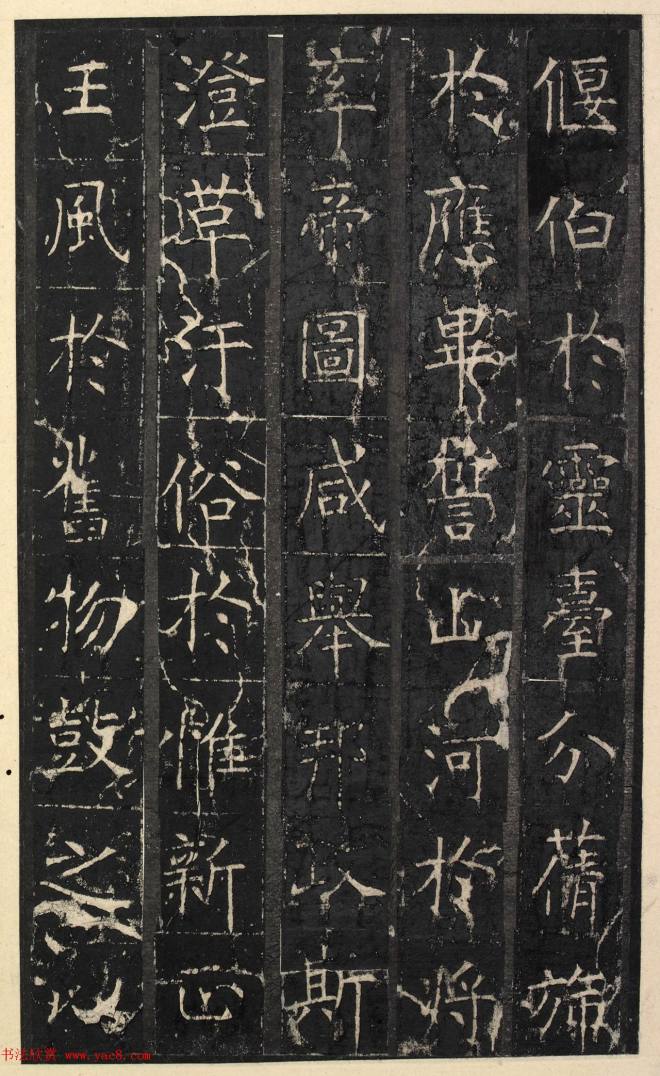 偃伯於靈臺分蒨旆
於應畢誓山河於將
率帝圖咸舉邦斯
澄革汙俗於惟新正
王風於舊物鼓之以
书法欣赏 www.yac8.com